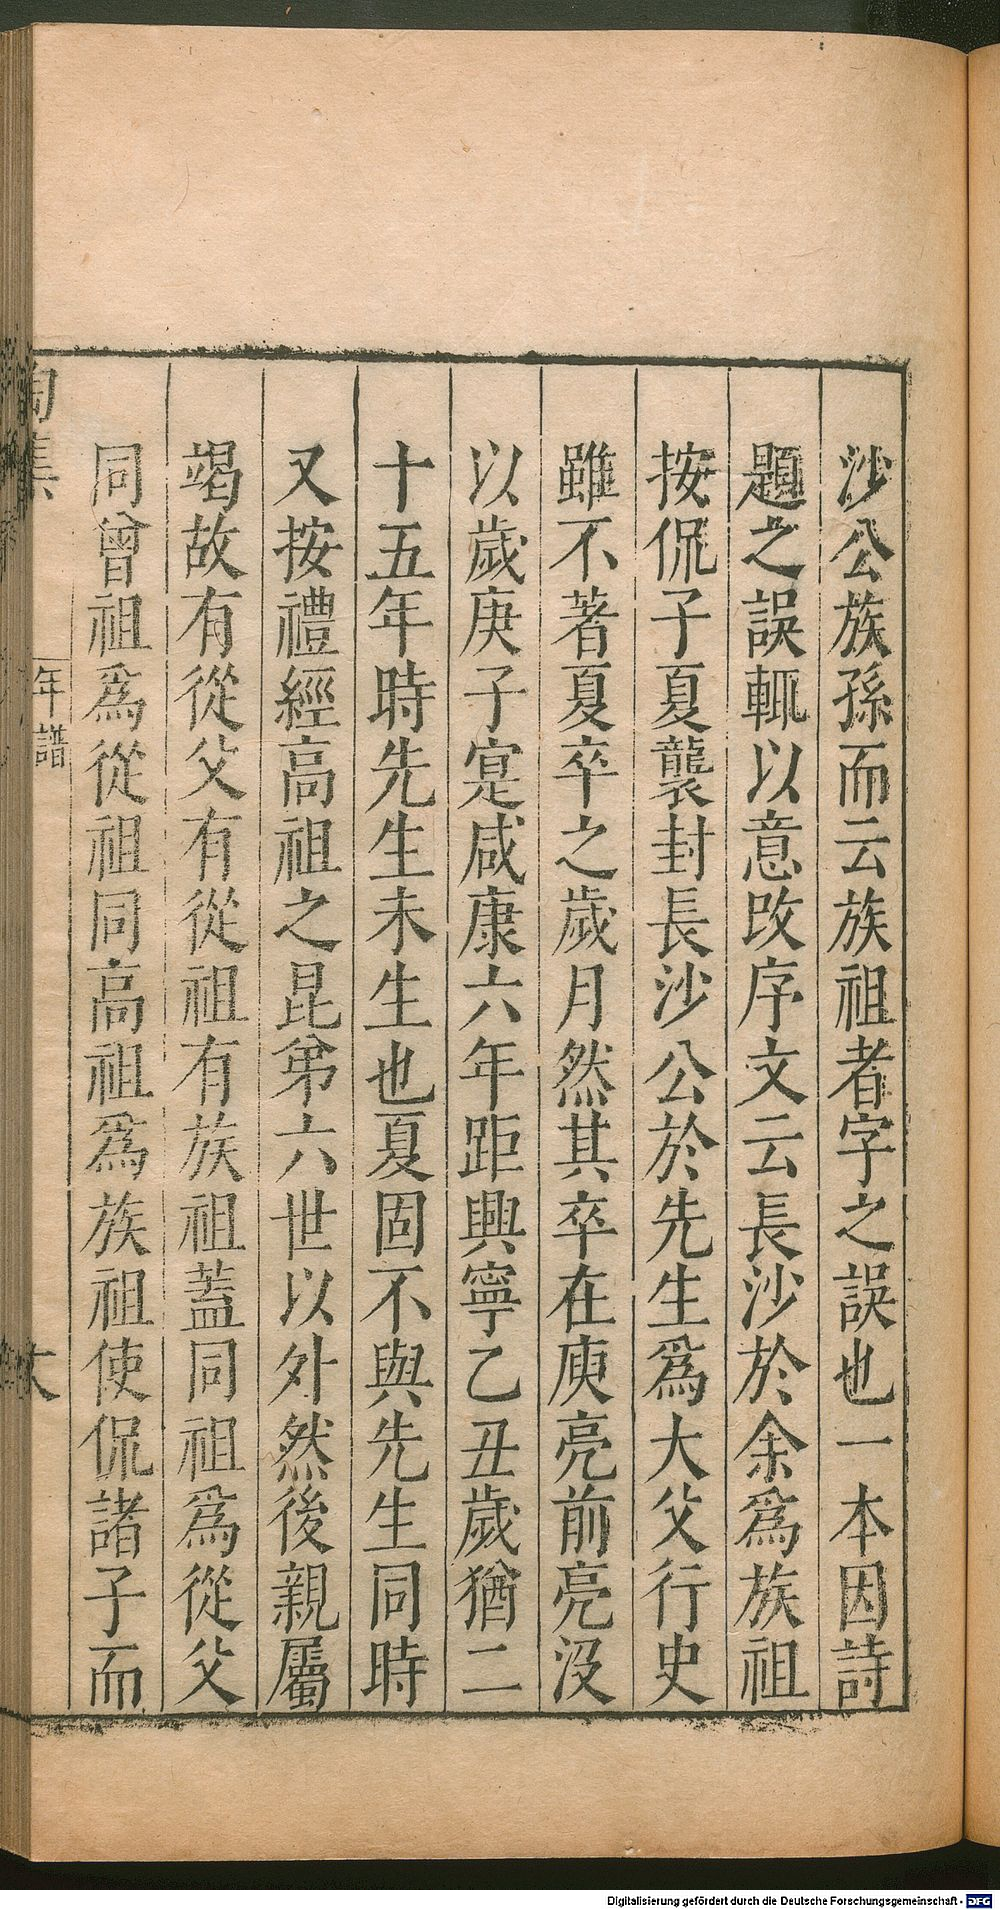 沙公族孫而云族祖者字之誤也一本因詩
題之誤輒以意改序文云長沙於余爲族祖
按侃子夏襲封長沙公於先生爲大父行史
雖不著夏卒之歲月然其卒在庾亮前亮沒
以歲庚子寔咸康六年距興寧乙丑歲猶二
十五年時先生未生也夏固不與先生同時
又按禮經高祖之昆弟六世以外然後親屬
竭故有從父有從祖有族祖蓋同祖爲從父
同曾祖爲從祖同高祖爲族祖使侃諸子而
陶集
年譜
Digitalisierung gefördert durch die Deutsche Forschungsgemeinschaft - DFG